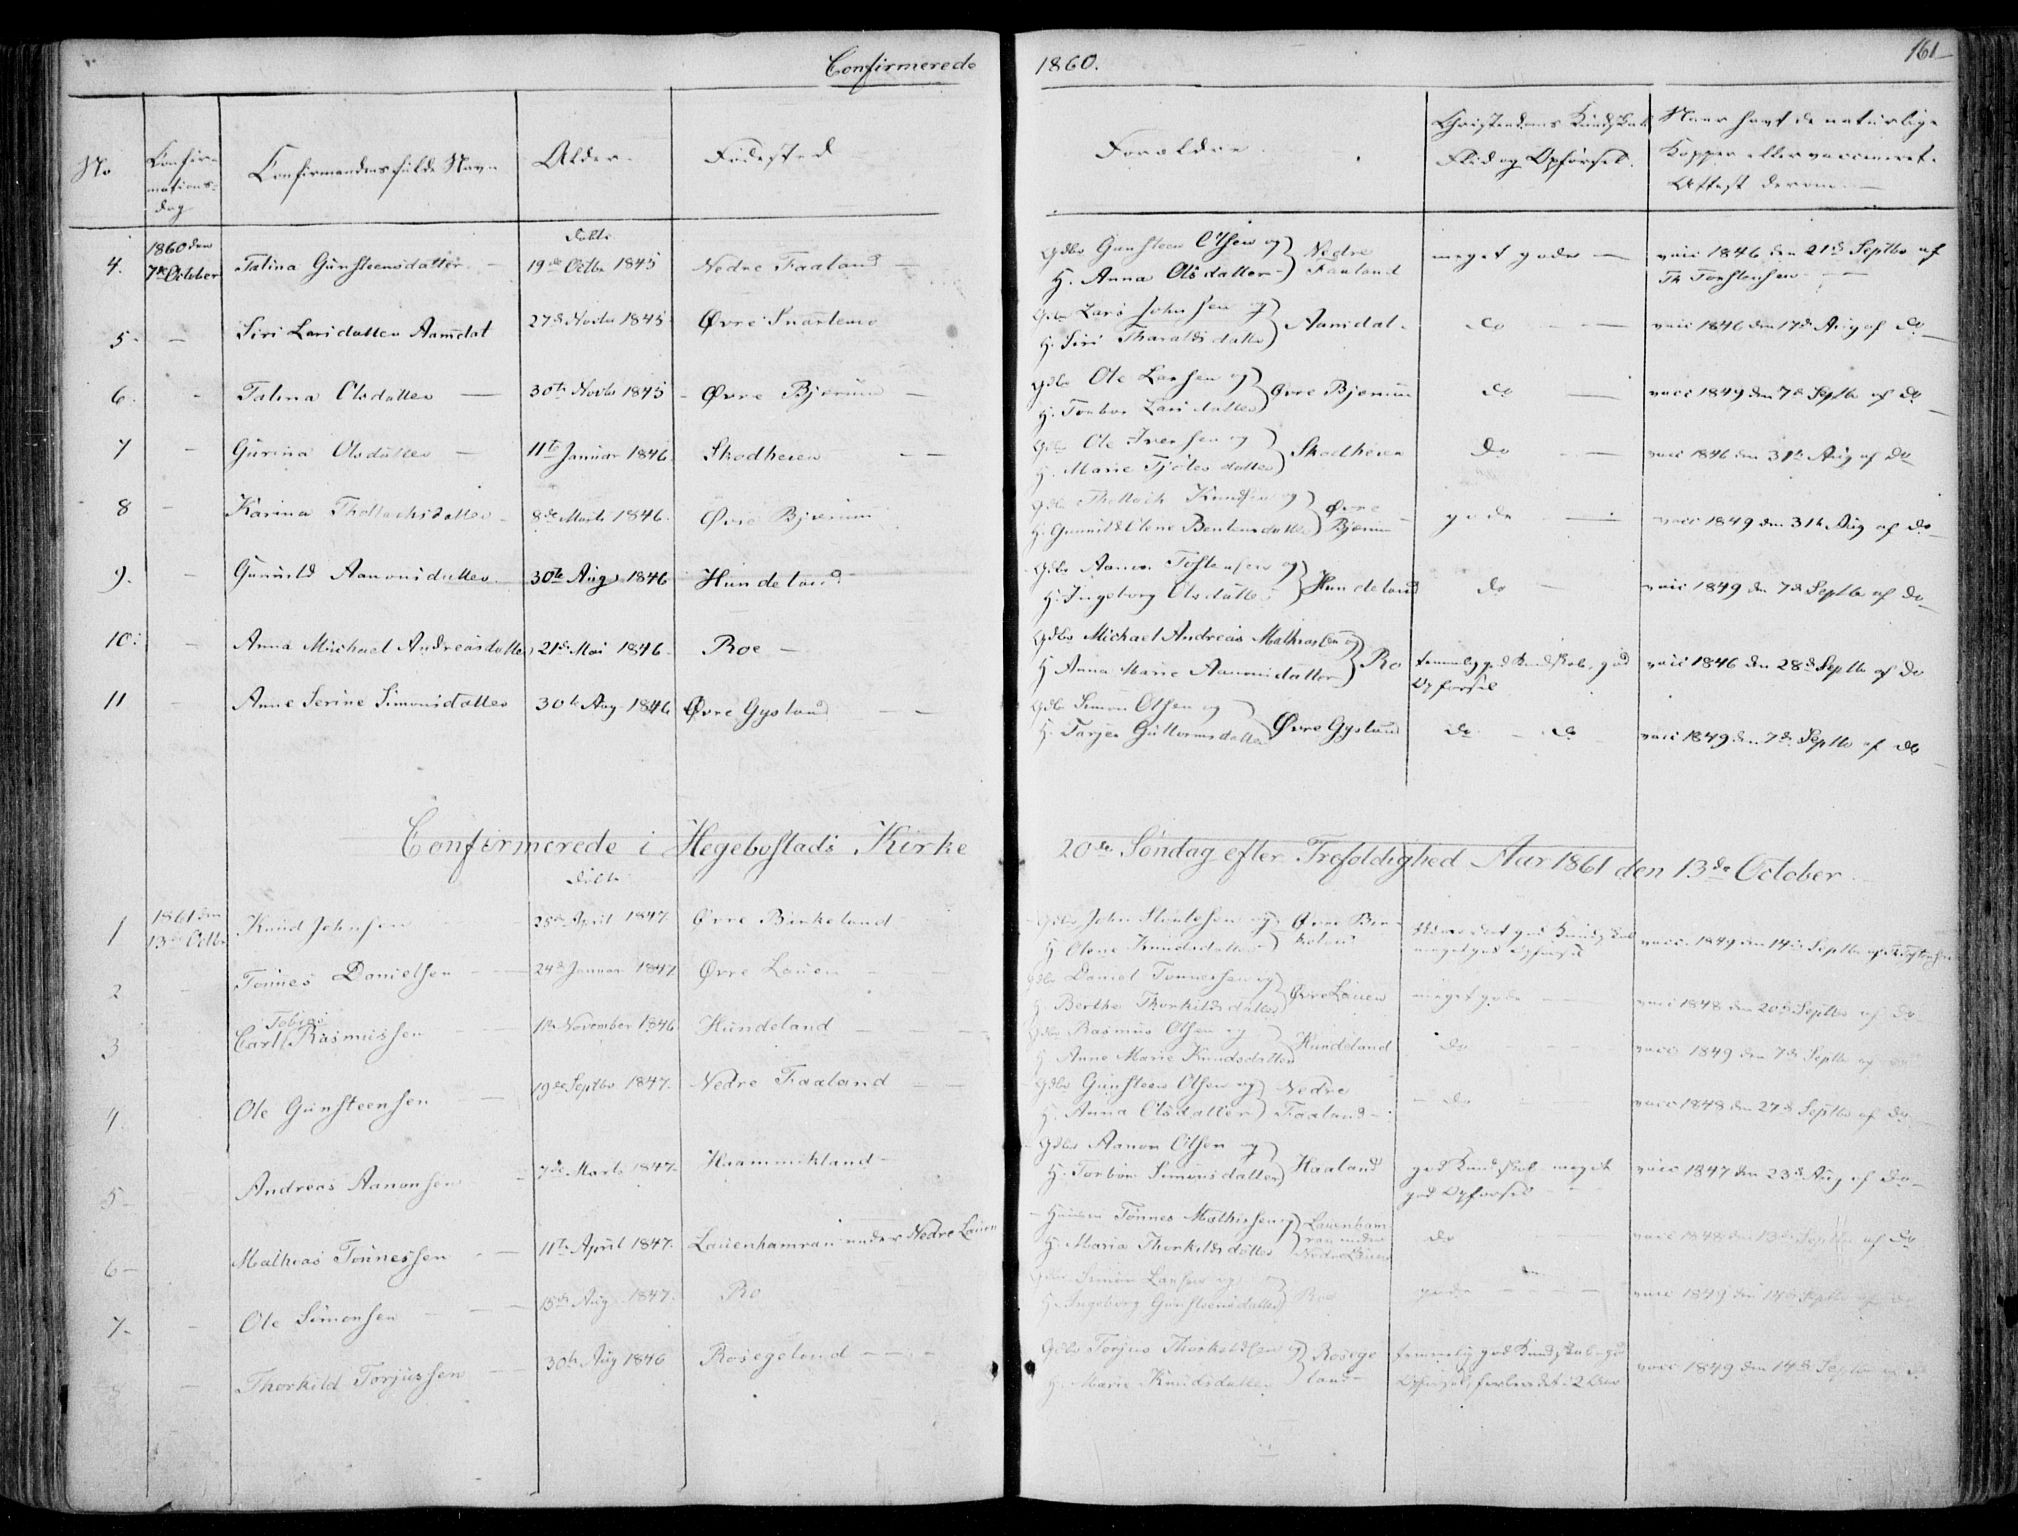 Confirmerede 1860.
161
No
Confir-
mations-
dag
Confirmandens fulde Navn
Alder
Fødested
Forældre
Christendoms Kundskab
Flid og Opførsel.
Naar havt de naturlige
Kopper eller vaccineret.
Attest derom
4. 1860 den 7de October Talina Gunsteensdatter døbt 19de Octbr 1845 Nedre Faaland
Gdbr Gunsteen Olsen og H. Anna Olsdatter Nedre Faaland meget gode vacc 1846 den 21de Septbr af Th Torstensen
5. Siri Larsdatter Aamdal 27de Novbr 1845 Øvre Snartemo
Gdbr Lars Johnsen og H. Siri Tharaldsdatter Aamdal do vacc 1846 den 17de Aug af do
6. Talina Olsdatter 30te Novbr 1845 Øvre Bjerum
Gdbr Ole Larsen og H. Torbor Larsdatter Øvre Bjerum do vacc 1849 den 7de Septbr af do
7 Gurina Olsdatter 11te Januar 1846 Skodheien
Gdbr Ole Iversen og H. Marie Tjølesdatter Skodheien do vacc 1846 den 31te Aug af do
8 Karina Thollachsdatter 8de Marts 1846. Øvre Bjerum
Gdbr Thollach Knudsen og H. Gunnild Olene Bentensdatter Øvre Bjerum gode vacc 1849 den 31te Aug af do
9. Gunnild Aanonsdatter 30te Aug 1846 Hundeland
Gdbr Aanon Tostensen og H. Ingeborg Olsdatter Hundeland do vacc 1849 den 7de Septbr af do
10. Anna Michael Andreasdatter 21de Mai 1846. Roe
Gdbr Michael Andreas Mathiasen og H Anna Marie Aanonsdatter Ro temmelig god Kundskab, god Opførsel vacc 1846 den 28de Septbr af do
11 Anne Serine Simonsdatter 30te Aug 1846 Øvre Gysland
Gdbr Simon Olsen og H. Tarjer Guttormsdatter Øvre Gysland do do vacc 1849 den 7de Septbr af do
Confirmerede i Hegebostads Kirke 20de Søndag efter Trefoldighed Aar 1861 den 13de October
døbt
1 1861 den 13de Octbr Knud Johnsen 25de April 1847 Øvre Birkeland
Gdbr John og H Olene Knudsdatter Øvre Birkeland god Kundskab meget god Opførsel vacc. 1849 den 14de Septbr af Th Tostensen
2 Tønnes Danielsen 24de Januar 1847 Øvre Lauen
Gdbr Daniel Tønnessen og H Berthe Thorkildsdatter Øvre Lauen meget gode vacc 1848 den 20de Septbr af do
3 Carl Tobias Rasmussen 1te November 1846 Hundeland
Gdbr Rasmus Olsen og H Anne Marie Knudsdatter Hundeland do vacc 1849 den 7de Septbr af do
4. Ole Gunsteensen 19de Septbr 1847. Nedre Faaland
Gdbr Gunsteen Olsen og H. Anna Olsdatter Nedre Faaland do vacc 1848 den 27de Septbr af do
5 Andreas Aanonsen 7de Marts 1847. Haammikland
Gdbr Aanon Olsen og H. Torbor Simonsdatter Haaland god Kundskab meget god Opførsel vacc 1847 den 23de Aug af do
6 Mathias Tønnessen 11te April 1847. Lauenhamran under Nedre Lauen
Tønnes Mathissen og H. Maria Thorkildsdatter Lauenhamran under Nedre Lauen do vacc 1848 den 13de Septbr af do
7 Ole Simonsen 15de Aug 1847. Ro
Gdbr Simon Larsen og H. Ingeborg Gunsteensdatter Roe gode vacc 1849 den 14de Septbr af do
8 Thorkild Torjussen 30te Aug 1846 Rosegeland
Gdbr Torjus Thorkildsen og H. Marie Knudsdatter Rosegeland temmelig god Kundskab god Opførsel, forberedet i 2 Aar vacc 1849 den 14de Septbr af do